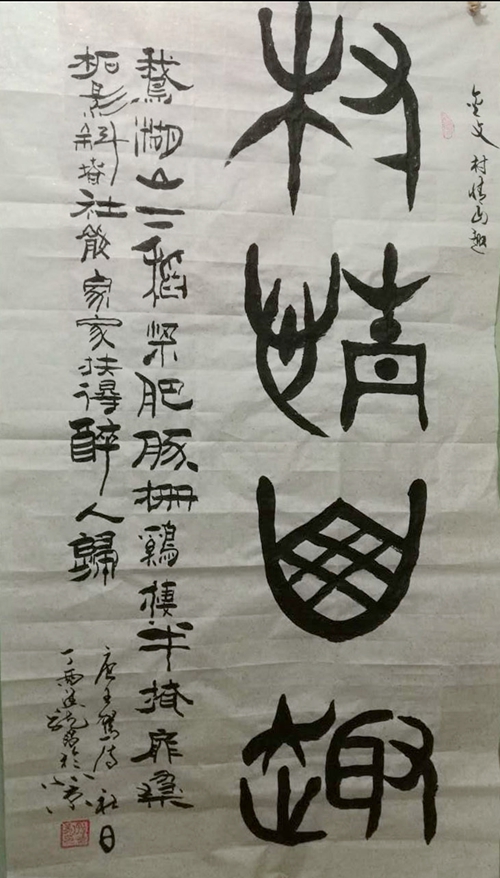 金文 村情山趣
村情山趣
鵞湖山下稻粱肥豚栅鷄棲半掩扉桑
柘影斜春社散家家扶得醉人歸
唐王駕詩 社日
丁酉